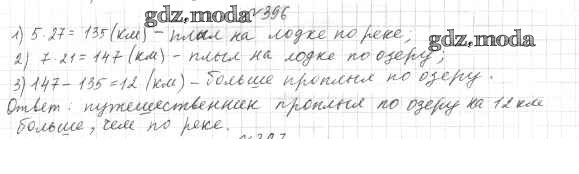 gdz.moda №396
1) 5·27 = 135 (км) – плыл на лодке по реке;
gdz.moda
2) 7·21 = 147 (км) – плыл на лодке по озеру;
3) 147 – 135 = 12 (км) – больше проплыл по озеру.
Ответ: путешественник проплыл по озеру на 12 км
больше, чем по реке.